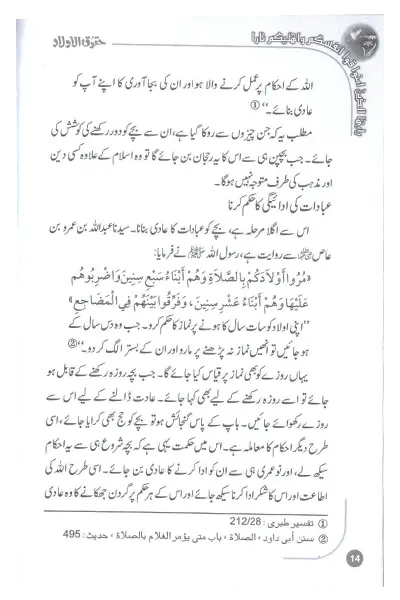 يا أيها الذين آمنوا قوا أنفسكم وأهليكم نارا
حقوق الاولاد
اللہ کے احکام پر عمل کرنے والا ہو اور ان کی بجا آوری کا اپنے آپ کو
عادی بنائے۔‘‘①
مطلب یہ کہ جن چیزوں سے روکا گیا ہے، ان سے بچے کو دور رکھنے کی کوشش کی
جائے۔ جب بچپن ہی سے اس کا یہ رجحان بن جائے گا تو وہ اسلام کے علاوہ کسی دین
اور مذہب کی طرف متوجہ نہیں ہوگا۔
عبادات کی ادائیگی کا حکم کرنا
اس سے اگلا مرحلہ ہے، بچے کو عبادات کا عادی بنانا۔ سیدنا عبداللہ بن عمرو بن
عاص ؓ سے روایت ہے، رسول اللہ ﷺ نے فرمایا:
«مُرُوا أَوْلَادَكُمْ بِالصَّلَاةِ وَهُمْ أَبْنَاءُ سَبْعِ سِنِينَ وَاضْرِبُوهُمْ
عَلَيْهَا وَهُمْ أَبْنَاءُ عَشْرِ سِنِينَ، وَفَرِّقُوا بَيْنَهُمْ فِي الْمَضَاجِعِ»
’’اپنی اولاد کو سات سال کا ہونے پر نماز کا حکم کرو۔ جب وہ دس سال کے
ہو جائیں تو انھیں نماز نہ پڑھنے پر مارو اور ان کے بستر الگ کر دو۔‘‘②
یہاں روزے کو بھی نماز پر قیاس کیا جائے گا۔ جب بچہ روزہ رکھنے کے قابل ہو
جائے تو اسے روزہ رکھنے کے لیے بھی کہا جائے۔ عادت ڈالنے کے لیے اس سے
روزے رکھوائے جائیں۔ باپ کے پاس گنجائش ہو تو بچے کو حج بھی کرایا جائے، اسی
طرح دیگر احکام کا معاملہ ہے۔ اس میں حکمت یہی ہے کہ بچہ شروع ہی سے یہ احکام
سیکھ لے، اور نوعمری ہی سے ان کو ادا کرنے کا عادی بن جائے۔ اسی طرح اللہ کی
اطاعت اور اس کا شکر ادا کرنا سیکھ جائے اور اس کے ہر حکم پر گردن جھکانے کا وہ عادی
① تفسیر طبری: 212/28
② سنن أبي داود، الصلاة، باب متى يؤمر الغلام بالصلاة، حديث: 495
14